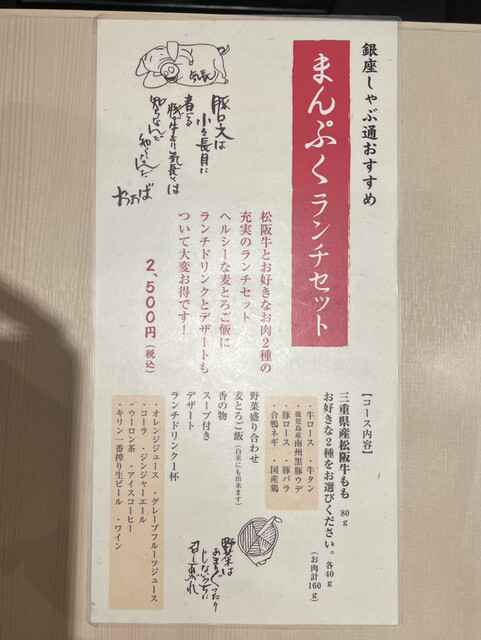 銀座しゃぶ通おすすめ
まんぷくランチセット
松阪牛とお好きなお肉2種の
充実のランチセット
ヘルシーな麦とろご飯に
ランチドリンクとデザートも
ついて大変お得です!
2,500円(税込)
気長
豚ロースは
小々長目に
煮る
豚は牛より気長とは
知らなんだ
知らなんだ
【コース内容】
三重県産松阪牛もも 80g
お好きな2種をお選びください。各40g
(お肉計160g)
・牛ロース ・牛タン
・鹿児島産南州黒豚ウデ
・豚ロース ・豚バラ
・合鴨ネギ ・国産鶏
野菜盛り合わせ
麦とろご飯(白米にも出来ます)
香の物
スープ付き
デザート
ランチドリンク1杯
・オレンジジュース ・グレープフルーツジュース
・コーラ ・ジンジャーエール
・ウーロン茶 ・アイスコーヒー
・キリン一番搾り生ビール ・ワイン
野菜は
あまりぐったり
しないうちに
召しあがれ